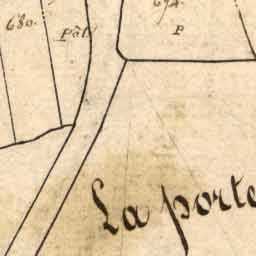 680.
Pât.
P
La porte